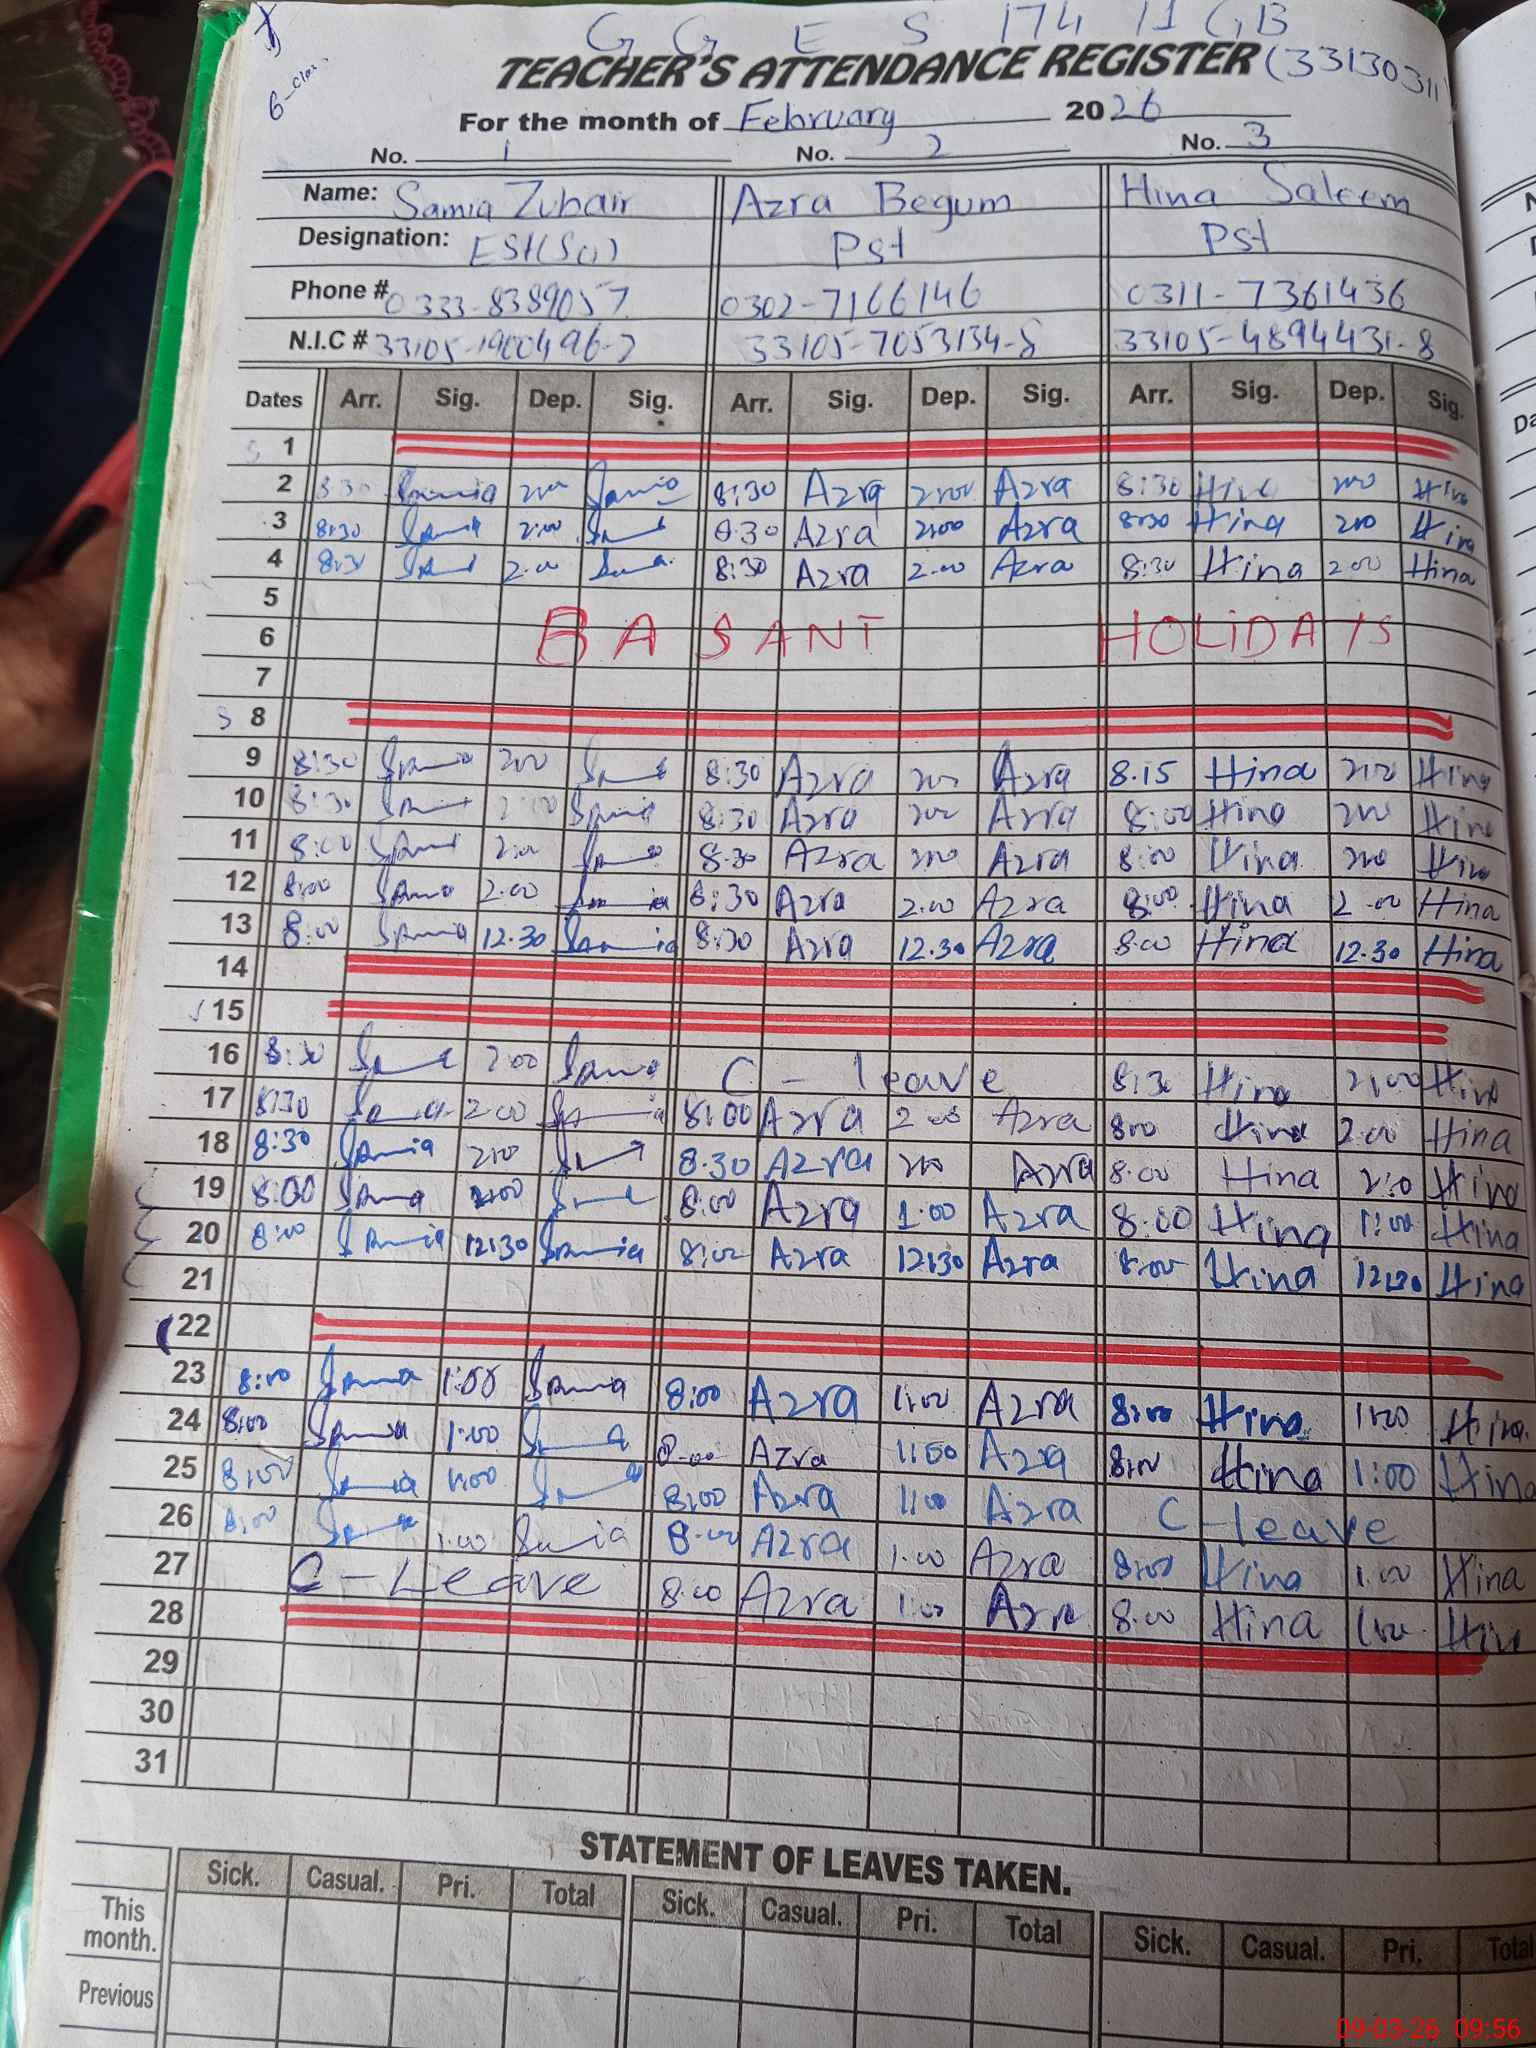 G G E S 174 11 GB
TEACHER'S ATTENDANCE REGISTER (33130311)
6-clas.
For the month of February 2026
No. 1 No. 2 No. 3
Name: Samia Zubair Azra Begum Hina Saleem
Designation: EST(Sci) Pst Pst
Phone # 0333-8389057 0302-7166146 0311-7361436
N.I.C # 33105-1900496-2 33105-7053134-8 33105-4894431-8
Dates Arr. Sig. Dep. Sig. Arr. Sig. Dep. Sig. Arr. Sig. Dep. Sig.
S 1
2 8:30 Samia 2:00 Samia 8:30 Azra 2:00 Azra 8:30 Hina 2:00 Hina
3 8:30 Samia 2:00 8:30 Azra 2:00 Azra 8:30 Hina 2:00 Hina
4 8:30 2:00 8:30 Azra 2:00 Azra 8:30 Hina 2:00 Hina
5
6 BASANT HOLIDAYS
7
S 8
9 8:30 Samia 2:00 8:30 Azra 2:00 Azra 8.15 Hina 2:00 Hina
10 8:30 2:00 Samia 8:30 Azra 2:00 Azra 8:00 Hina 2:00 Hina
11 8:00 Sami 2:00 8.30 Azra 2:00 Azra 8:00 Hina 2:00 Hina
12 8:00 Samia 2.00 Samia 8:30 Azra 2.00 Azra 8:00 Hina 2.00 Hina
13 8:00 Samia 12.30 Samia 8:30 Azra 12.30 Azra 8.00 Hina 12.30 Hina
14
S 15
16 8:30 2:00 Samia C - leave 8:30 Hina 2:00 Hina
17 8:30 Samia 2:00 Samia 8:00 Azra 2:00 Azra 8:00 Hina 2:00 Hina
18 8:30 Samia 2:00 8.30 Azra 2:00 Azra 8:00 Hina 2:00 Hina
19 8:00 Samia 8:00 Azra 1:00 Azra 8:00 Hina 1:00 Hina
20 8:00 Samia 12:30 Samia 8:00 Azra 12:30 Azra 8:00 Hina 12:30 Hina
21
22
23 8:00 Samia 1:00 Samia 8:00 Azra 1:00 Azra 8:00 Hina 1:00 Hina
24 8:00 Samia 1:00 8:00 Azra 1:00 Azra 8:00 Hina 1:00 Hina
25 8:00 Samia 1:00 8:00 Azra 1:00 Azra C - leave
26 8:00 1:00 Samia 8:00 Azra 1:00 Azra 8:00 Hina 1:00 Hina
27 C - Leave 8:00 Azra 1:00 Azra 8:00 Hina 1:00 Hina
28
29
30
31
STATEMENT OF LEAVES TAKEN.
Sick. Casual. Pri. Total Sick. Casual. Pri. Total Sick. Casual. Pri. Total
This month.
Previous
09-03-26 09:56